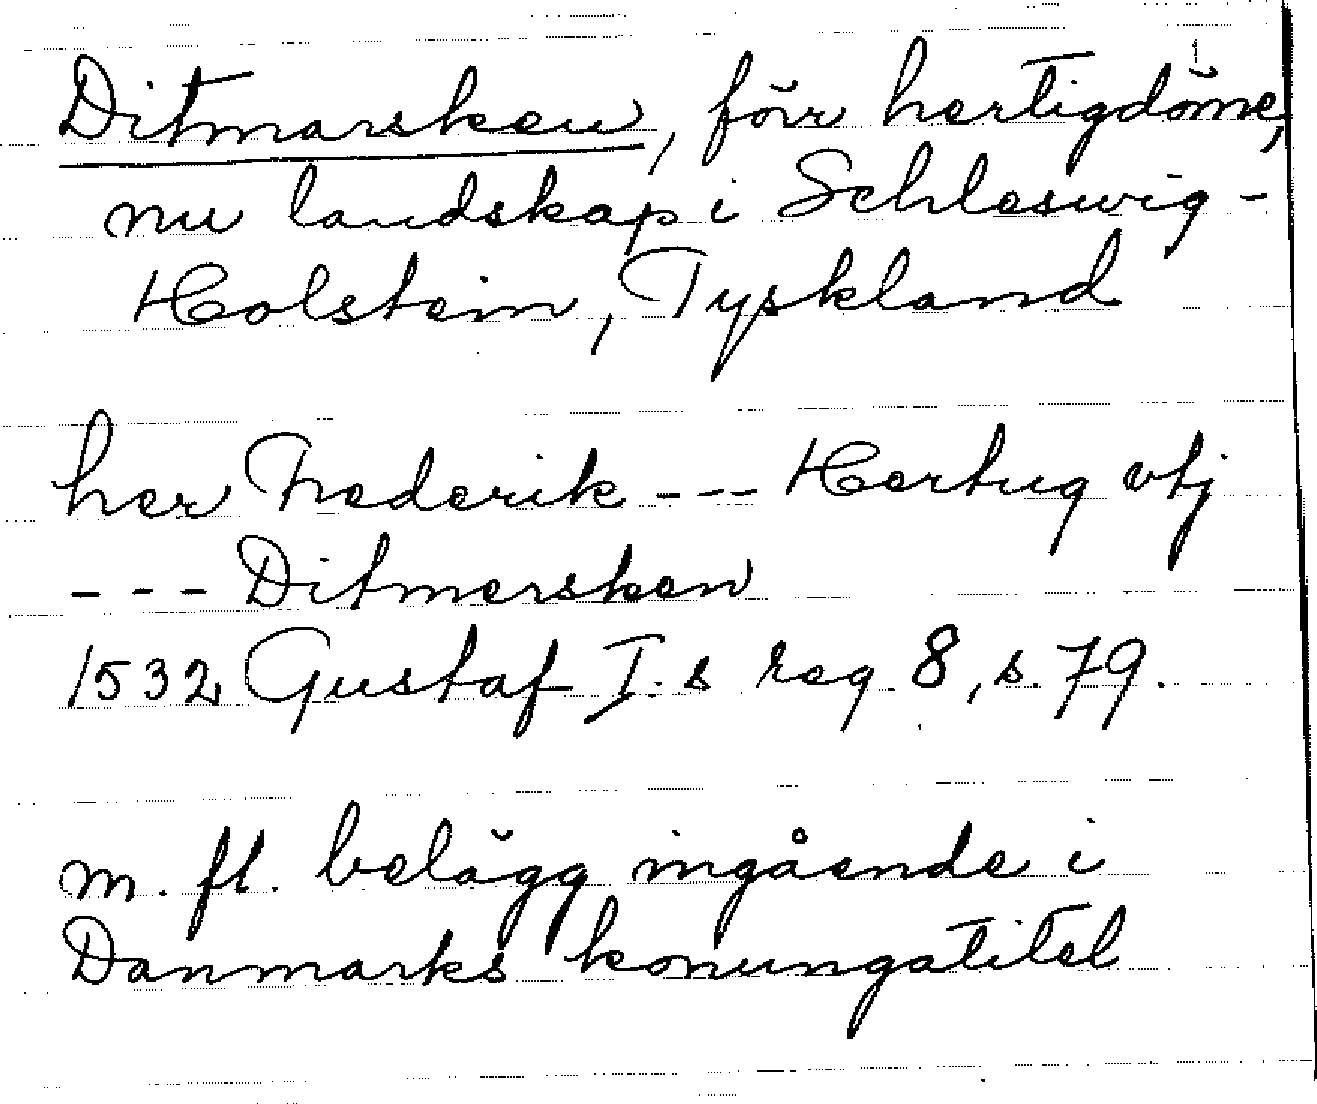 Ditmarsken, förr hertigdöme,
nu landskap i Schleswig-
Holstein, Tyskland
her Frederik --- Hertug vtj
--- Ditmersken
1532 Gustaf I.s reg. 8, s. 79.
m. fl. belägg ingående i
Danmarks konungatitel